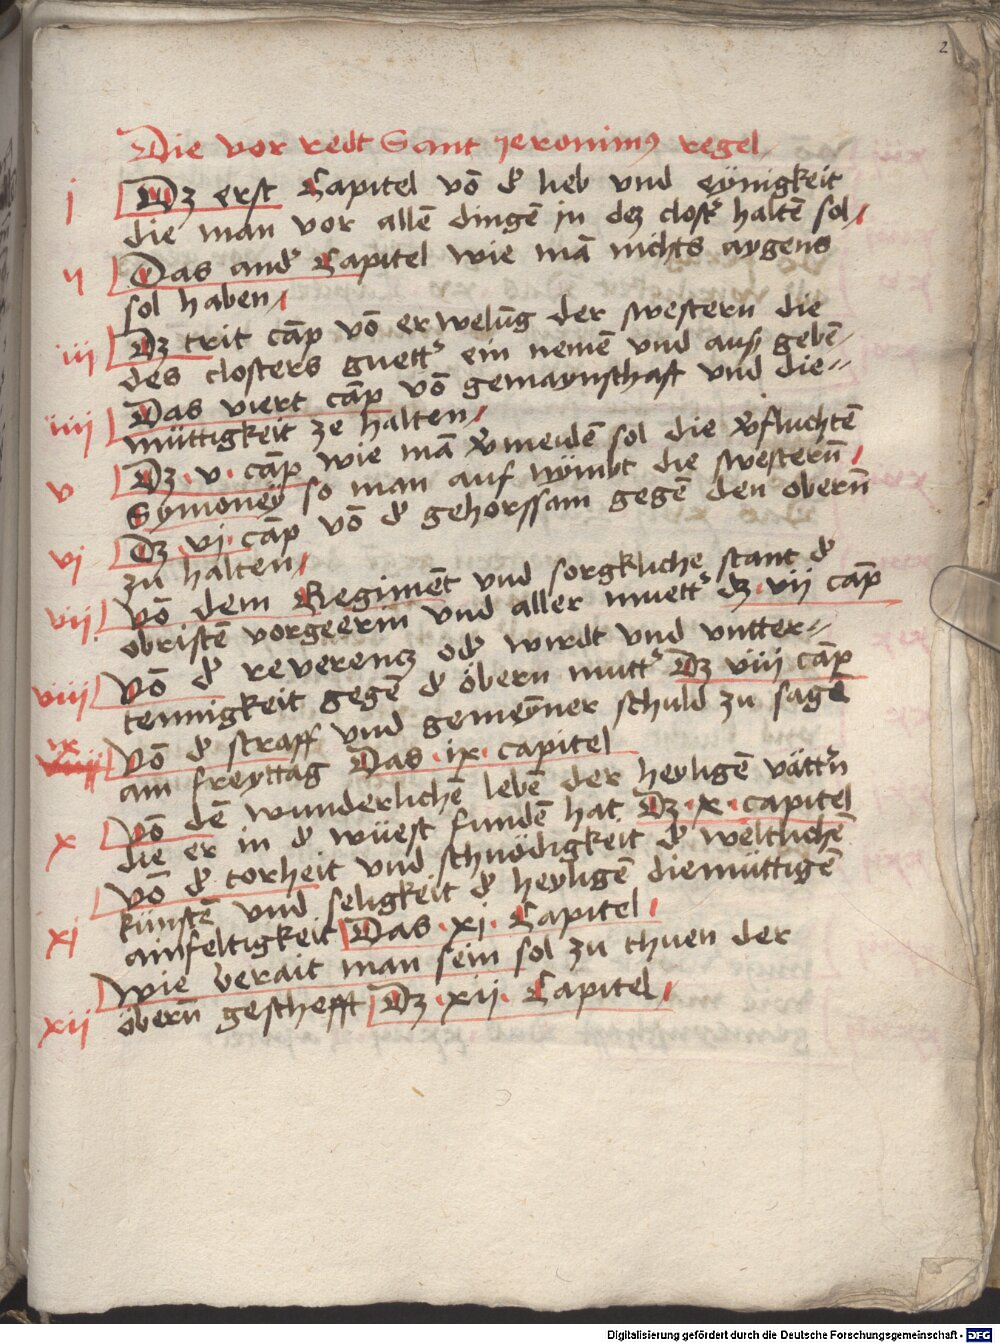 2
Die vor redt Sant Jeronimꝰ regel
i Dz erst Capitel vō dˀ lieb vnd eÿnigkeit
die man vor allē dingē in dez clostˀ haltē sol
ij Das andˀ Capitel wie mā nichts aygens
sol haben
iii Dz trit cāp vō erwelūg der swestern die
des closters guettˀ ein nemē vnd auß gebē
iiii Das viert cāp vō gemaynschaft vnd die=
müttigkeit ze halten
v Dz · v · cāp wie mā v̄meidē sol die v̄fluchtē
Symoneÿ so man auf nÿmbt die swestern̄
vi Dz · vj · cāp vō dˀ gehorssam gegē den obern̄
zu halten
vii vō dem Regimēt vnd sorgkliche stant dˀ
obristē vorgeerin vnd aller muettˀ dz · vij cāp
viii vō dˀ reverencz odˀ wirdt vnd vntter=
tennigkeit gegē dˀ öbern muttˀ Dz viii cāp
ix vō dˀ straff vnd gemeÿner schuld zu sagē
am freyttag Das · ix · capitel
x vō dē wunderlichē lebē der heyligē vättˀn
die er in dˀ wüest fundē hat Dz · x · capitel
vō dˀ torheit vnd schnödigkeit dˀ weltlichē
künstē vnd seligkeit dˀ heyligē diemüttigē
xi ainfeltigkeit Das · xi · Capitel
wie berait man sein sol zu thuen der
xii öbern̄ geschefft Dz · xii · Capitel
Digitalisierung gefördert durch die Deutsche Forschungsgemeinschaft - DFG